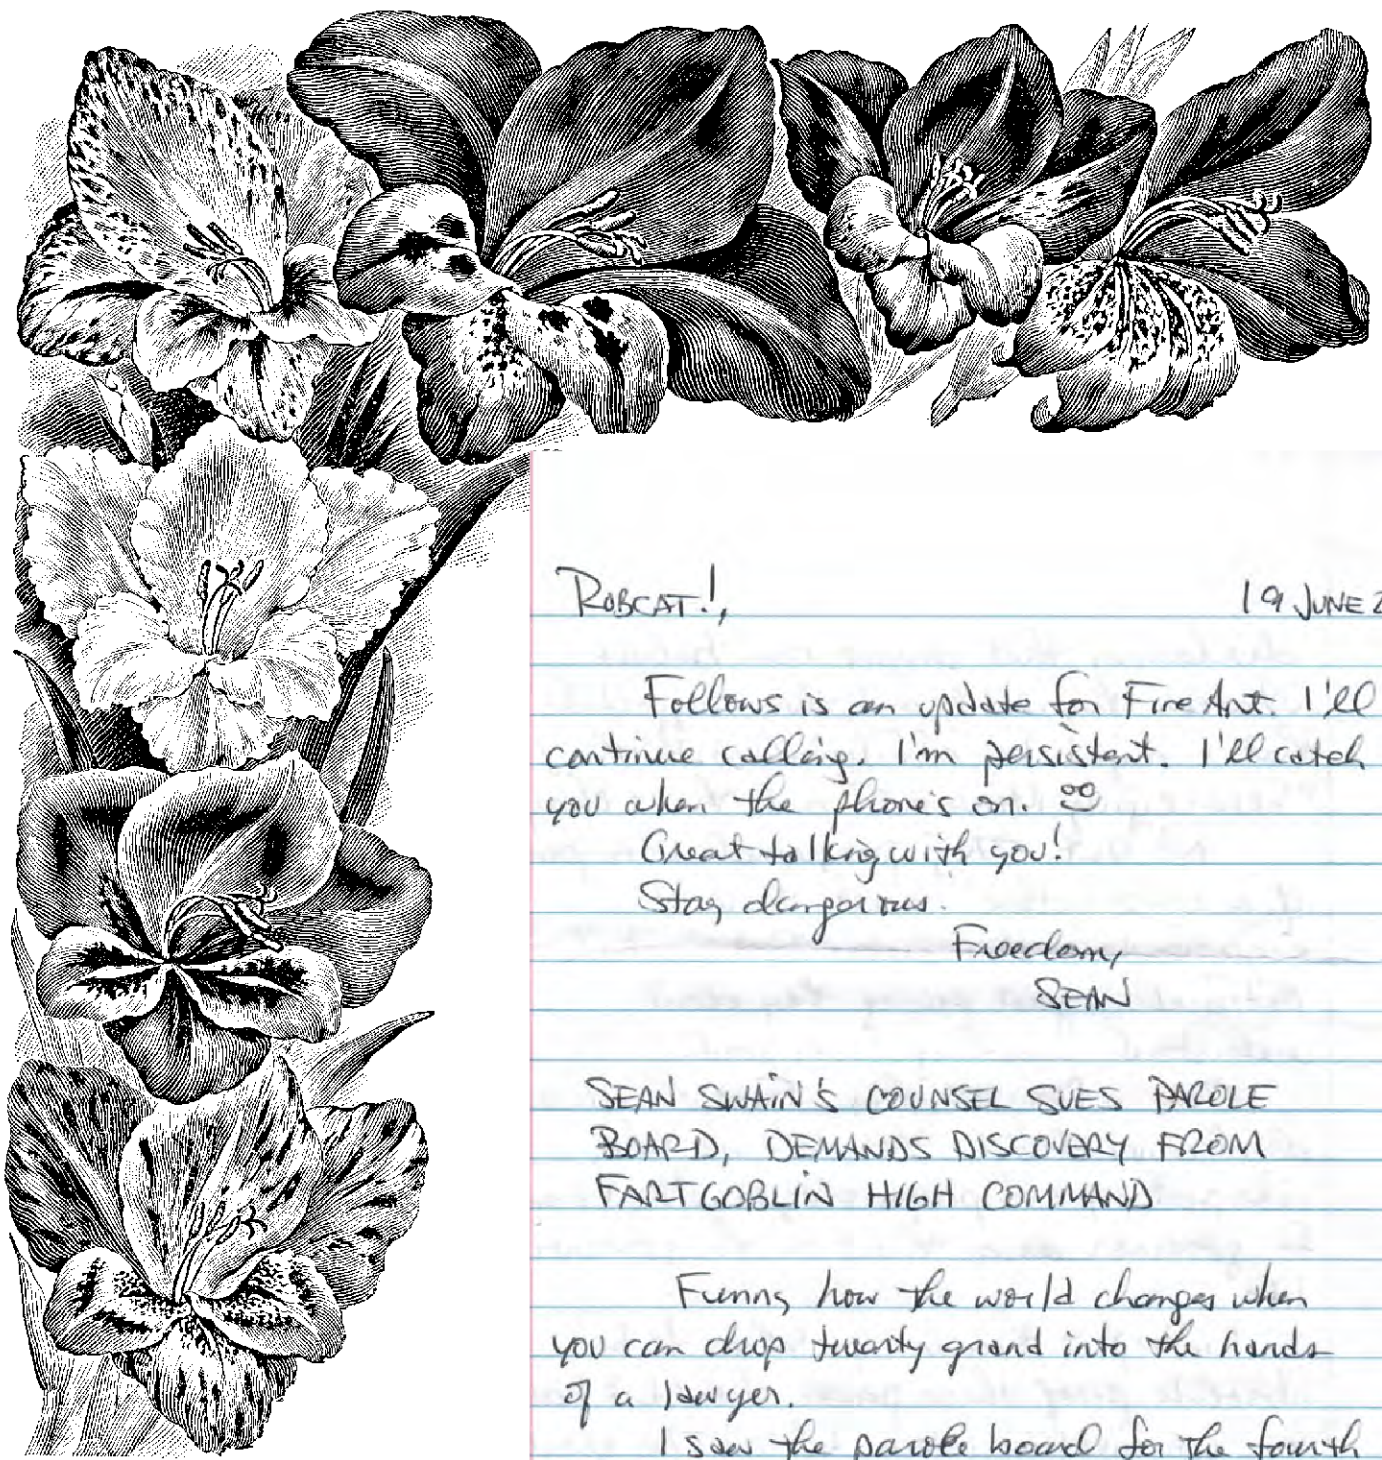 ROBCAT!,
19 JUNE 2
Follows is an update for Fire Ant. I'll
continue calling. I'm persistent. I'll catch
you when the phone's on.
Great talking with you!
Stay dangerous.
Freedom,
SEAN
SEAN SWAIN'S COUNSEL SUES PAROLE
BOARD, DEMANDS DISCOVERY FROM
FARTGOBLIN HIGH COMMAND
Funny how the world changes when
you can drop twenty grand into the hands
of a lawyer.
I saw the parole board for the fourth